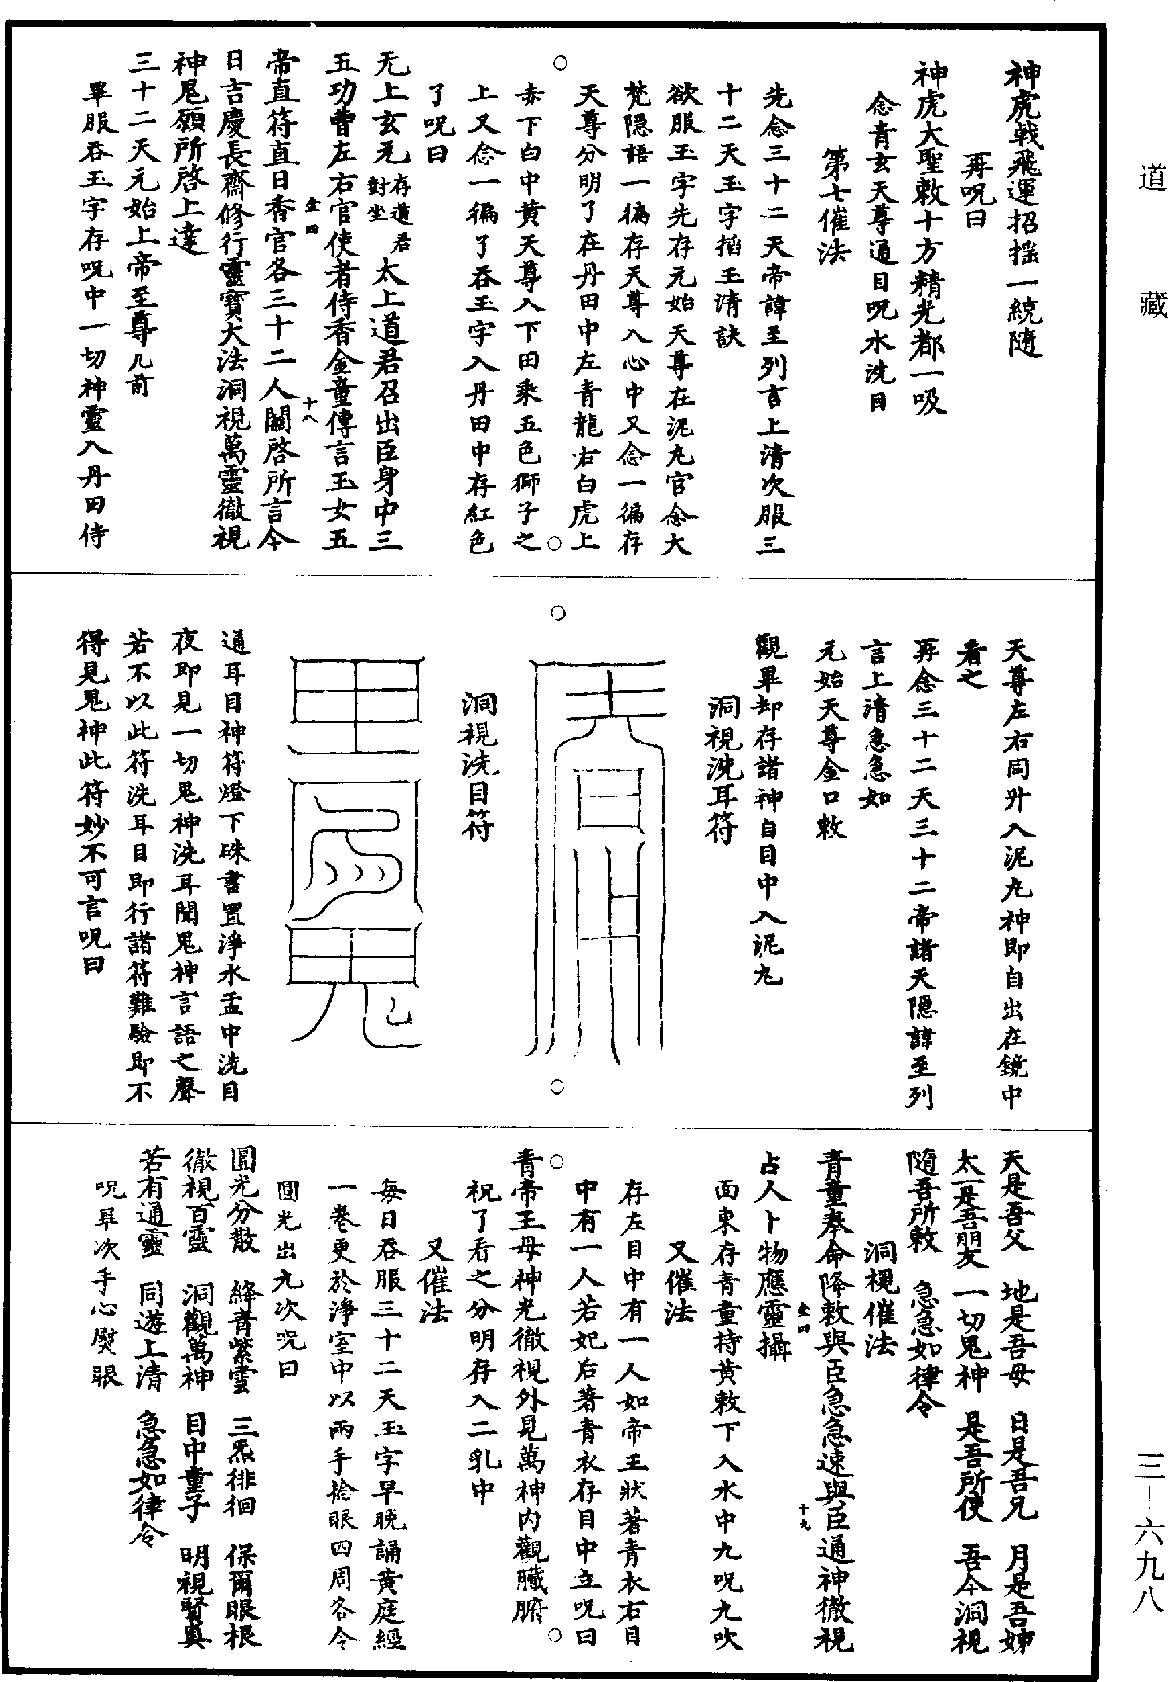 道藏
神虎戟飛運招搖一統隨
再呪曰
神虎大聖敕十方精光都一吸
念青玄天尊通目呪水洗目
第七催法
先念三十二天帝諱至列言上清次服三
十二天玉字掐玉清訣
欲服玉字先存元始天尊在泥丸宫念大
梵隱語一徧存天尊入心中又念一徧存
天尊分明了在丹田中左青龍右白虎上
赤下白中黄天尊入下田乘五色獅子之
上又念一徧了吞玉字入丹田中存紅色
了呪曰
无上玄元存道君對坐太上道君召出臣身中三
五功曹左右官使者侍香金童傳言玉女五
帝直符直日香官各三十二人關啓所言今
日言慶長齋修行靈寶大法洞視萬靈徹視
神鬼願所啓上達
三十二天元始上帝至尊几前
畢服吞玉字存呪中一切神靈入丹田侍
天尊左右同升入泥丸神即自出在鏡中
看之
再念三十二天三十二帝諸天隱諱至列
言上清急急如
元始天尊金口敕
觀畢却存諸神自目中入泥丸
洞視洗耳符
洞視洗目符
通耳目神符燈下硃書置淨水盂中洗目
夜即見一切鬼神洗耳聞鬼神言語之聲
若不以此符洗耳目即行諸符難驗即不
得見鬼神此符妙不可言呪曰
天是吾父 地是吾母 日是吾兄 月是吾姊
太一是吾朋友 一切鬼神 是吾所使 吾今洞視
隨吾所敕 急急如律令
洞視催法
青童奉命降敕與臣急急速與臣通神徹視
占人卜物應靈攝
面東存青童持黄敕下入水中九呪九吹
又催法
存左目中有一人如帝王狀著青衣右目
中有一人若妃后著青衣存目中立呪曰
青帝王母神光徹視外見萬神内觀臟腑
祝了看之分明存入二乳中
又催法
每日吞服三十二天玉字早晚誦黄庭經
一卷更於淨室中以兩手捻眼四周各令
圓光出九次呪曰
圓光分散 絳青紫雲 三炁徘徊 保爾眼根
徹視百靈 洞觀萬神 目中童子 明視賢真
若有通靈 同遊上清 急急如律令
呪畢次手心熨眼
三－六九八